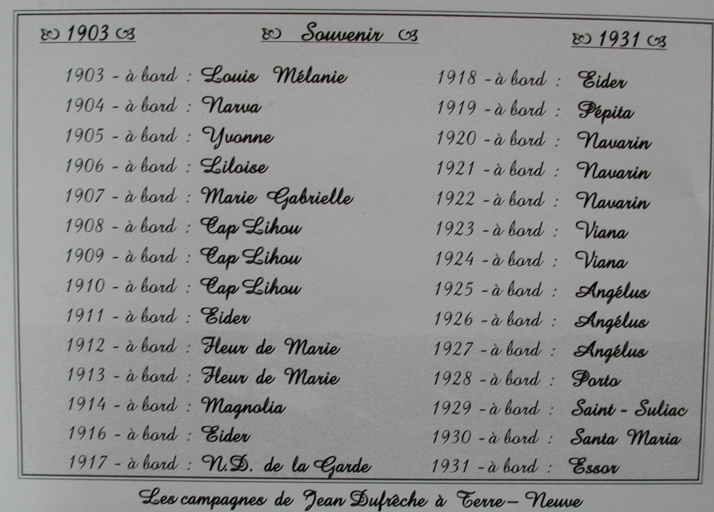 1903
Souvenir
1931
1903 - à bord : Louis Mélanie
1904 - à bord : Narva
1905 - à bord : Yvonne
1906 - à bord : Liloise
1907 - à bord : Marie Gabrielle
1908 - à bord : Cap Lihou
1909 - à bord : Cap Lihou
1910 - à bord : Cap Lihou
1911 - à bord : Eider
1912 - à bord : Fleur de Marie
1913 - à bord : Fleur de Marie
1914 - à bord : Magnolia
1916 - à bord : Eider
1917 - à bord : N.D. de la Garde
1918 - à bord : Eider
1919 - à bord : Pépita
1920 - à bord : Navarin
1921 - à bord : Navarin
1922 - à bord : Navarin
1923 - à bord : Viana
1924 - à bord : Viana
1925 - à bord : Angélus
1926 - à bord : Angélus
1927 - à bord : Angélus
1928 - à bord : Porto
1929 - à bord : Saint - Suliac
1930 - à bord : Santa Maria
1931 - à bord : Essor
Les campagnes de Jean Dufrêche à Terre - Neuve